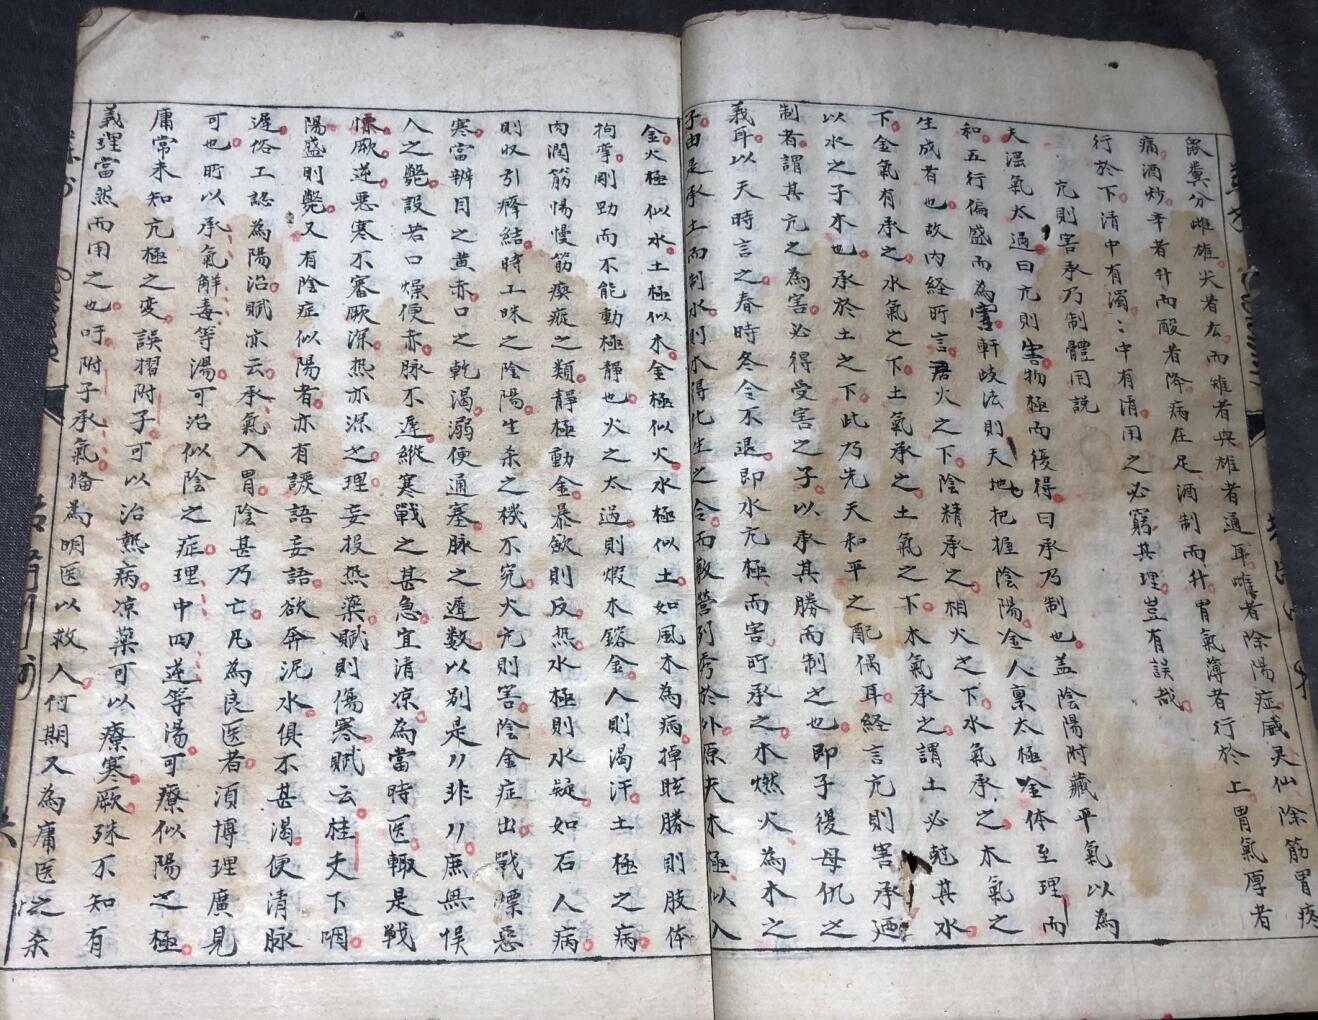 鼠糞分雌雄尖者公而雄者與雄者通耳雌者除陽症威灵仙除筋胃疼
痛酒炒辛者升而酸者降病在足酒制而升胃氣薄者行於上胃氣厚者
行於下清中有濁濁中有清用之必窮其理豈有誤哉
亢則害承乃制體用説
天温氣太過曰亢則害物極而後得曰承乃制也盖陰陽附藏平氣以為
和五行偏盛而為害軒歧法則天地把握陰陽人稟太極全体至理而
生成者也故内経所言君火之下陰精承之相火之下水氣承之木氣之
下金氣有承之水氣之下土氣承之土氣之下木氣承之謂土必尅其水
以水之子木也承於土之下此乃先天和平之配偶耳経言亢則害承廼
制者謂其亢之為害必得受害之子以承其勝而制之也即子復母仇之
義耳以天時言之春時冬令不退即水亢極而害所承之木燃火為木之
子由是承土而制水則木得化生之令而敷營列秀於外原夫木極似入
金火極似水土極似木金極似火水極似土如風木為病掉眩勝則肢体
拘攣剛勁而不能動極靜也火之太過則煅木鎔金人則渴汗土極之病
肉潤筋惕慢筋瘈瘲之類靜極動金暴歛則反热水極則水凝如石人病
則收引癢結時工昧之陰陽生杀之機不究火亢則害陰金症出戰慄惡
寒當辨目之黄赤口之乾渴溺便通塞脉之遲数以别是非庶無悞
人之斃設若口燥便赤脉不遲縱寒戰之甚急宜清凉為當時医輙是戰
慄厥逆悪寒不審厥深热亦深之理妄投热藥賦則傷寒賦云桂夫下咽
陽盛則斃又有陰症似陽者亦有譫語妄語欲奔泥水俱不甚渴便清脉
遲俗工認為陽治賦亦云承氣入胃陰甚乃亡凡為良医者湏博理廣見
可也所以承氣解毒等湯可治似陰之症理中四逆等湯可療似陽之極
庸常未知亢極之変誤摺附子可以治热病凉藥可以療寒厥殊不知有
義理當然而用之也吁附子承氣偹為明医以救人何期又為庸医之杀